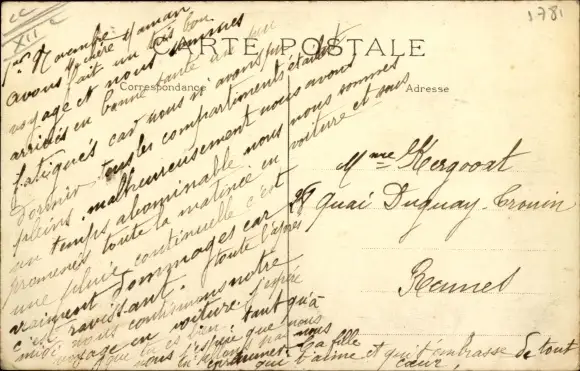 XIIe
1781
CARTE POSTALE
Correspondance
Adresse
1er Novembre
Chère Maman
avons fait un très bon
voyage et nous sommes
arrivés en bonne santé un peu
fatigués car nous n'avons pu
dormir tous les compartiments étant
pleins. malheureusement nous avons
un temps abominable nous nous sommes
promenés toute la matinée en voiture et sous
une pluie continuelle c'est
vraiment dommages car
c'est ravissant. toute l'après
midi nous continuons notre
voyage en voiture. J'espère
que tu es bien
nous
Ta fille
qui t'aime et qui t'embrasse de tout
cœur.
Mme Kergoat
28 Quai Duguay-Trouin
Rennes